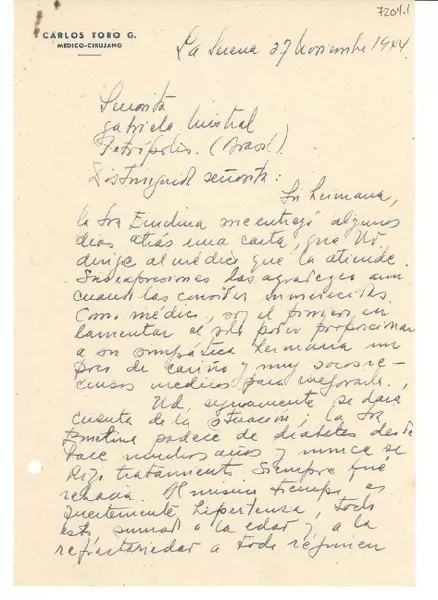 7204.1
CARLOS TORO G.
MEDICO-CIRUJANO
La Serena 27 Noviembre 1944
Señorita
Gabriela Mistral
Petrópolis. (Brasil)
Distinguida señorita:
Su hermana,
la Sra Emelina me entregó algunos
dias atrás una carta, que Ud.
dirige al médico que la atiende.
Sus expresiones las agradezco aun
cuando las considero inmerecidas.
Como médico, soy el primero en
lamentar el solo poder proporcionar
a su simpática hermana un
poco de cariño y muy pocos re-
cursos medicos para mejorarla.
Ud, seguramente, se dará
cuenta de la situación, la Sra
Emelina padece de diabetes desde
hace muchos años y nunca se
hizo tratamiento siempre que
Al mismo tiempo, es
fuertemente hipertensa, todo
esto sumado a la edad y a la
refractariedad a todo régimen